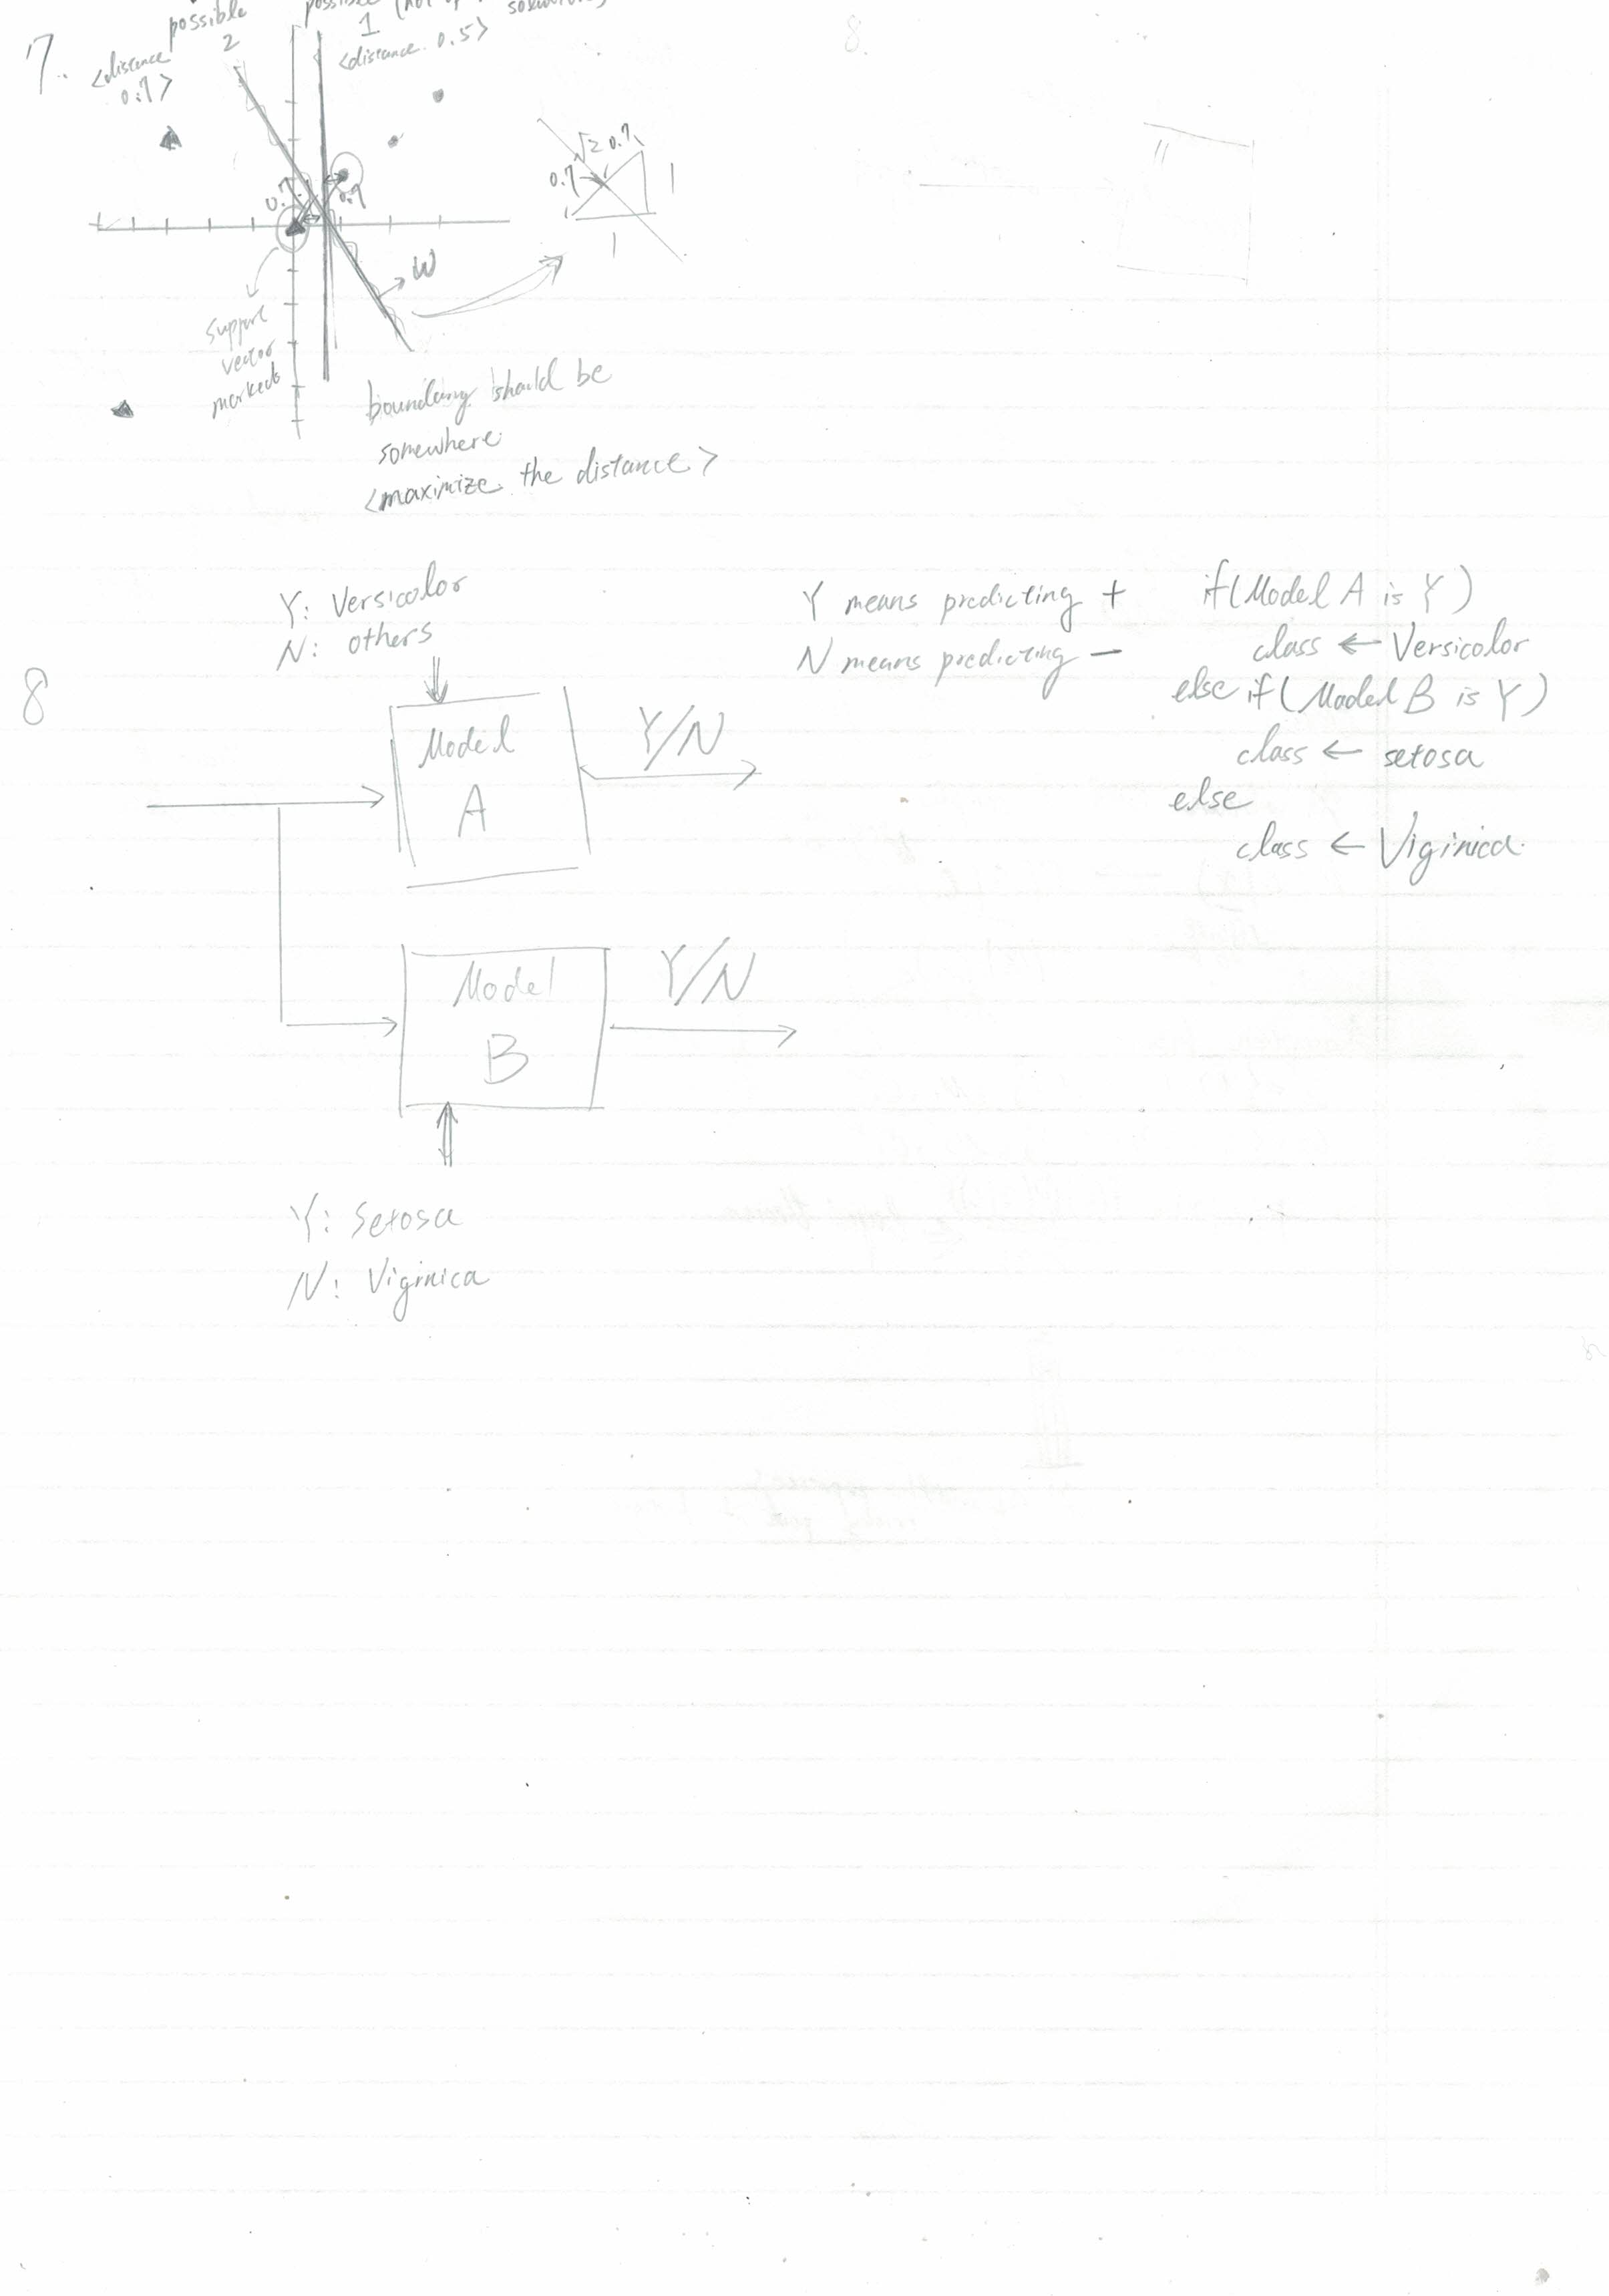 7.
possible
2
<distance
0.7>
possible
1
<distance 0.5>
0.7
0.7
W
support
vector
marked
√2 0.7
0.7
1
1
boundary should be
somewhere
<maximize the distance>
8.
8
Y: Versicolor
N: others
Model
A
Y/N
Model
B
Y/N
Y: Setosa
N: Viginica
Y means predicting +
N means predicting -
if (Model A is Y)
class ← Versicolor
else if (Model B is Y)
class ← setosa
else
class ← Viginica.